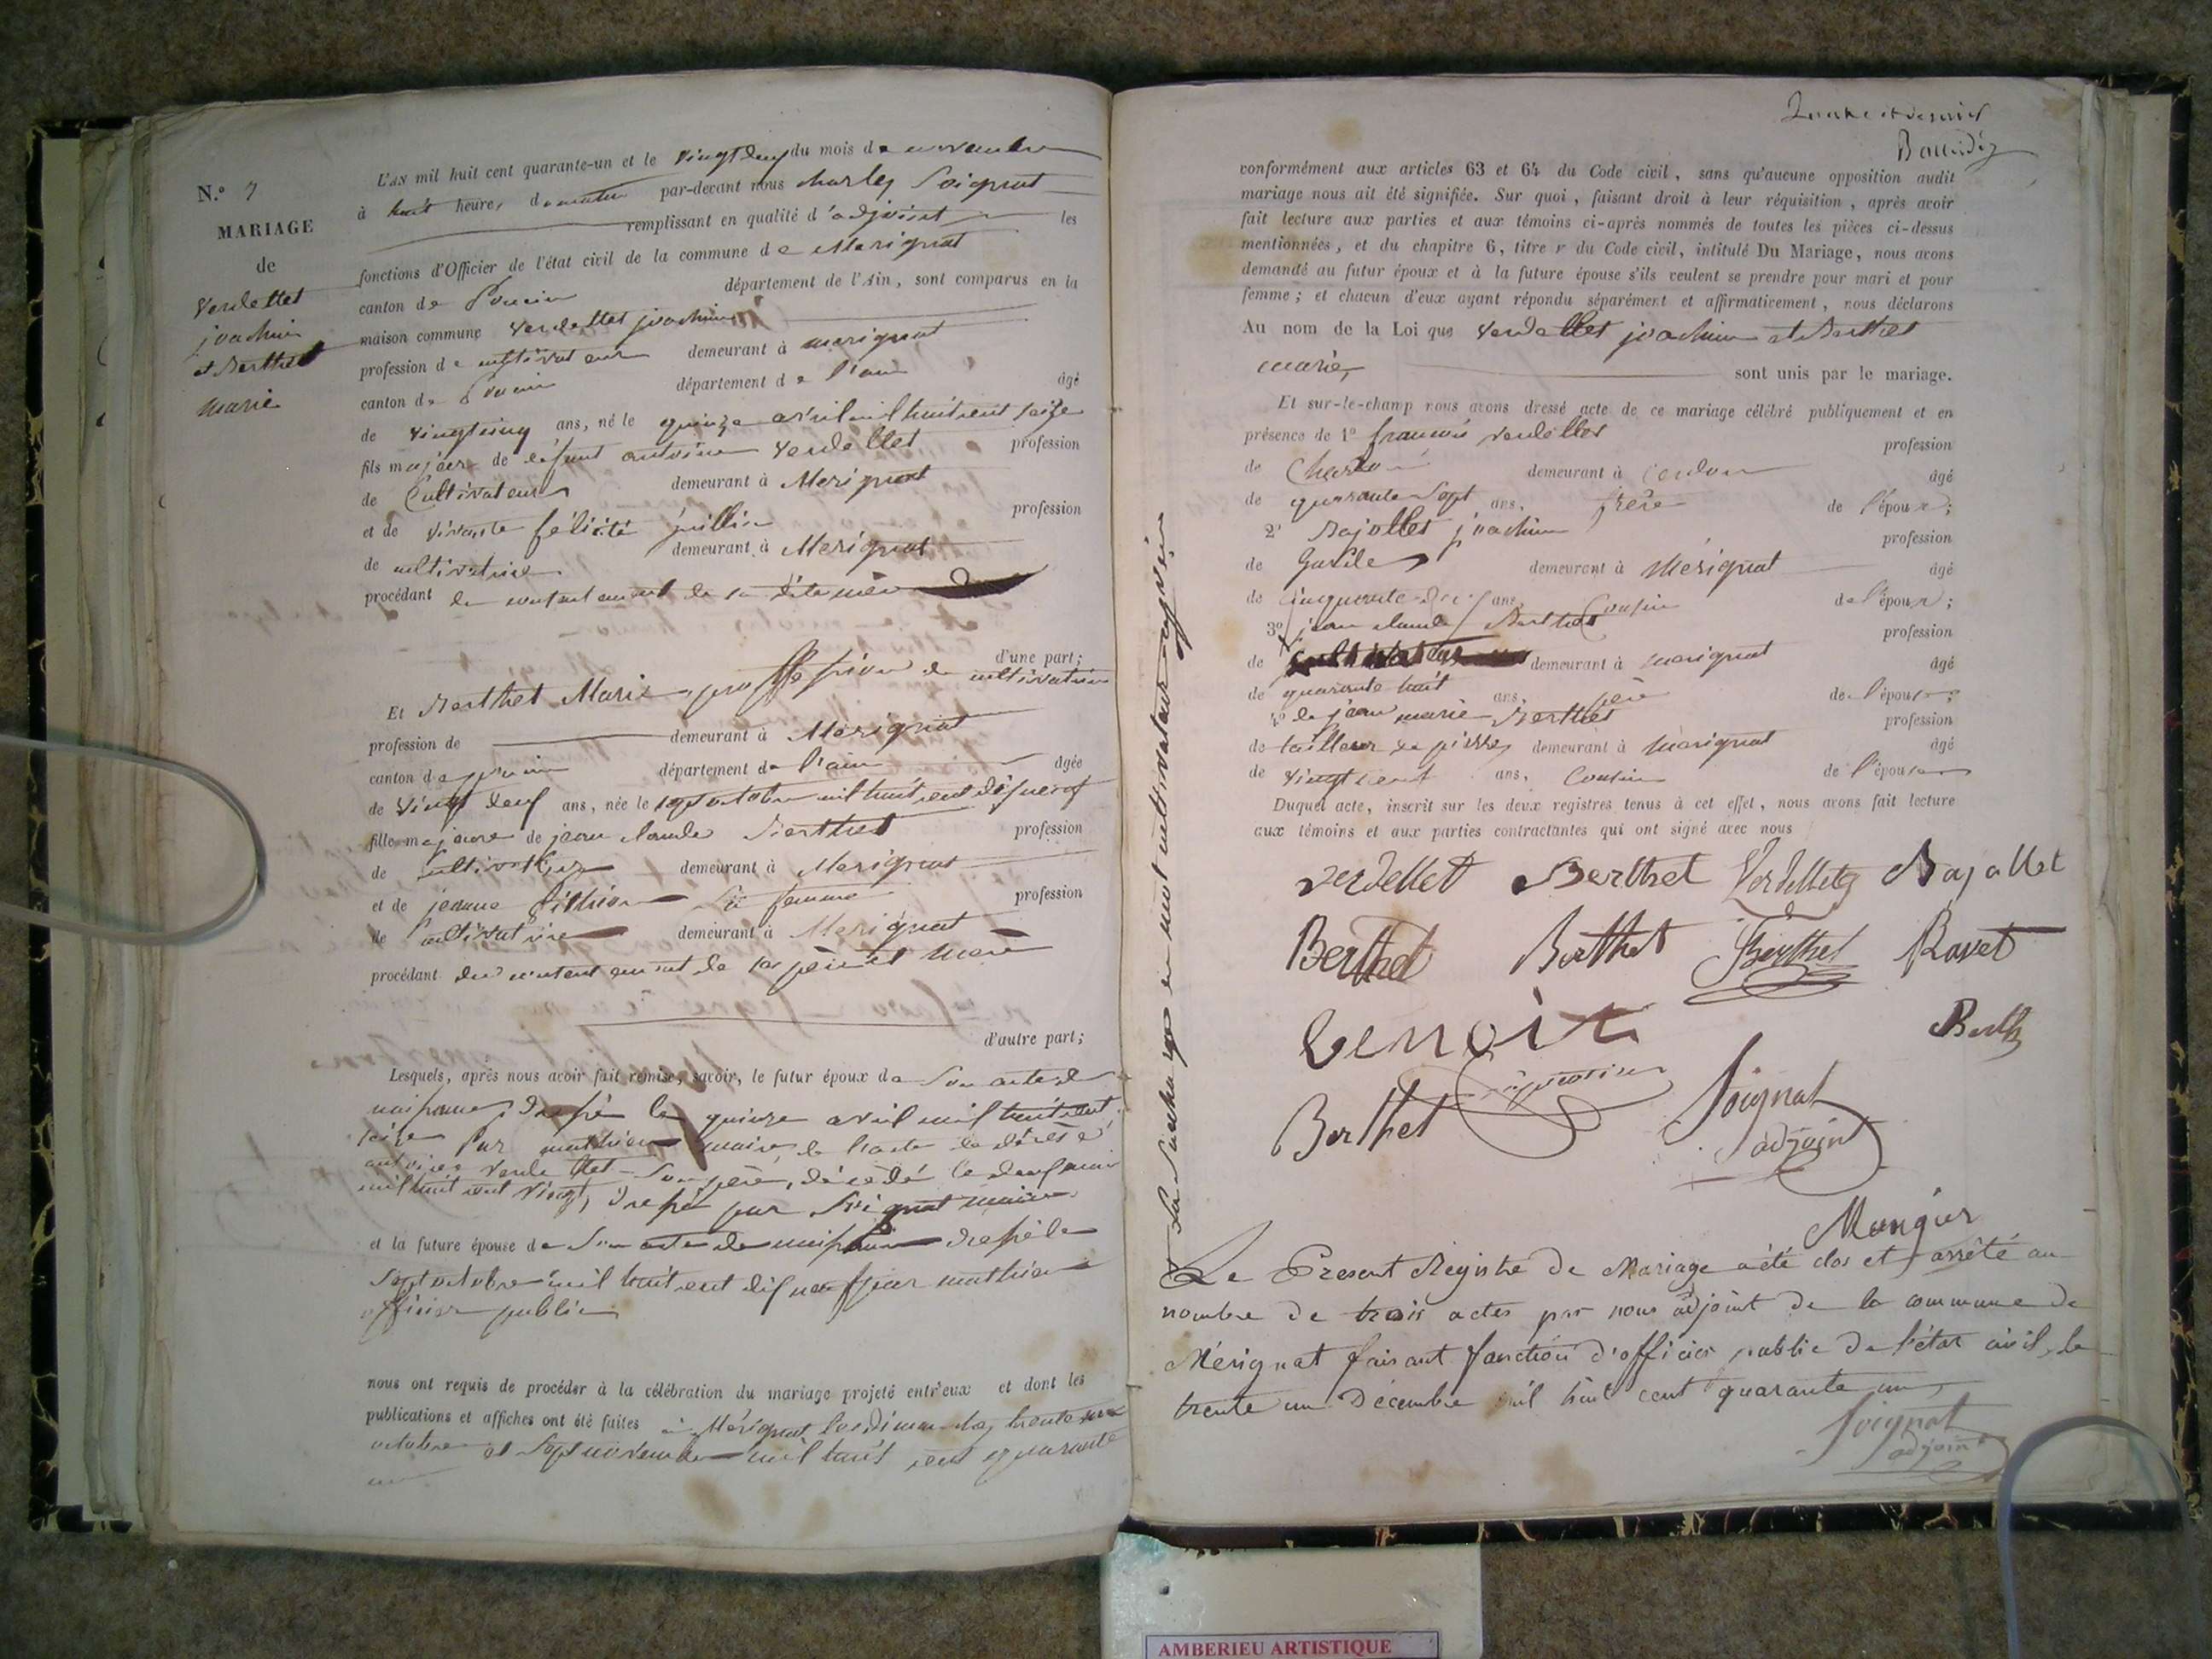 N.º 7
MARIAGE
de
Verdellet
joachim
et Berthet
marie
L'an mil huit cent quarante-un et le vingt deux du mois de novembre
à huit heures du matin par-devant nous charles Soignat
remplissant en qualité d'adjoint les
fonctions d'Officier de l'état civil de la commune de Merignat
canton de Poncin département de l'Ain, sont comparus en la
maison commune Verdellet joachim
profession de cultivateur demeurant à merignat
canton de Poncin département de l'ain âgé
de vingt cinq ans, né le quinze avril mil huit cent seize
fils majeur de défunt antoine Verdellet profession
de Cultivateur demeurant à Merignat
et de vivante félicité profession
de cultivatrice demeurant à Merignat
procédant du consentement de sa dite mère
d'une part;
Et Berthet Marie, proffession de cultivatrice
profession de demeurant à Merignat
canton de poncin département de l'ain âgée
de vingt deux ans, née le sept octobre mil huit cent dix neuf
fille majeure de jean claude Berthet profession
de cultivateur demeurant à Merignat
et de jeanne sa femme profession
de cultivatrice demeurant à Merignat
procédant du consentement de ses père et mère
d'autre part;
Lesquels, après nous avoir fait remise, savoir, le futur époux de son acte de
naissance, dressé le quinze avril mil huit cent
seize par mathieu maire de l'acte de décès d'
antoine Verdellet son père, décédé le deux
mil huit cent vingt, dressé par Soignat maire
et la future épouse de son acte de naissance dressé le
sept octobre mil huit cent dix neuf par mathieu
officier public
nous ont requis de procéder à la célébration du mariage projeté entr'eux et dont les
publications et affiches ont été faites à Mérignat les dimanches trente un
octobre et sept novembre mil huit cent quarante
un
conformément aux articles 63 et 64 du Code civil, sans qu'aucune opposition audit
mariage nous ait été signifiée. Sur quoi, faisant droit à leur réquisition, après avoir
fait lecture aux parties et aux témoins ci-après nommés de toutes les pièces ci-dessus
mentionnées, et du chapitre 6, titre v du Code civil, intitulé Du Mariage, nous avons
demandé au futur époux et à la future épouse s'ils veulent se prendre pour mari et pour
femme; et chacun d'eux ayant répondu séparément et affirmativement, nous déclarons
Au nom de la Loi que Verdellet joachim et Berthet
marie, sont unis par le mariage.
Et sur-le-champ nous avons dressé acte de ce mariage célébré publiquement et en
présence de 1º francois verdellet profession
de demeurant à Cerdon âgé
de quarante sept ans, frère de l'époux;
2º Bajollet joachim profession
de Garde demeurant à Mérignat âgé
de cinquante ans, Cousin de l'époux;
3º jean claude Berthet profession
de demeurant à merignat âgé
de quarante huit ans, père de l'épouse;
4º de jean marie Berthet profession
de tailleur de pierres demeurant à Merignat âgé
de vingt ans, Cousin de l'épouse
Duquel acte, inscrit sur les deux registres tenus à cet effet, nous avons fait lecture
aux témoins et aux parties contractantes qui ont signé avec nous
verdellet Berthet Verdellet Bajollet
Berthet Berthet Berthet Ravet
benoit Berth
Berthet Soignat
adjoint
Mangier
Le Present Registre de Mariage a été clos et arrêté au
nombre de trois actes par nous adjoint de la commune de
Mérignat faisant fonction d'officier public de l'état civil, le
trente un Décembre mil huit cent quarante un,
Soignat
adjoint
AMBERIEU ARTISTIQUE